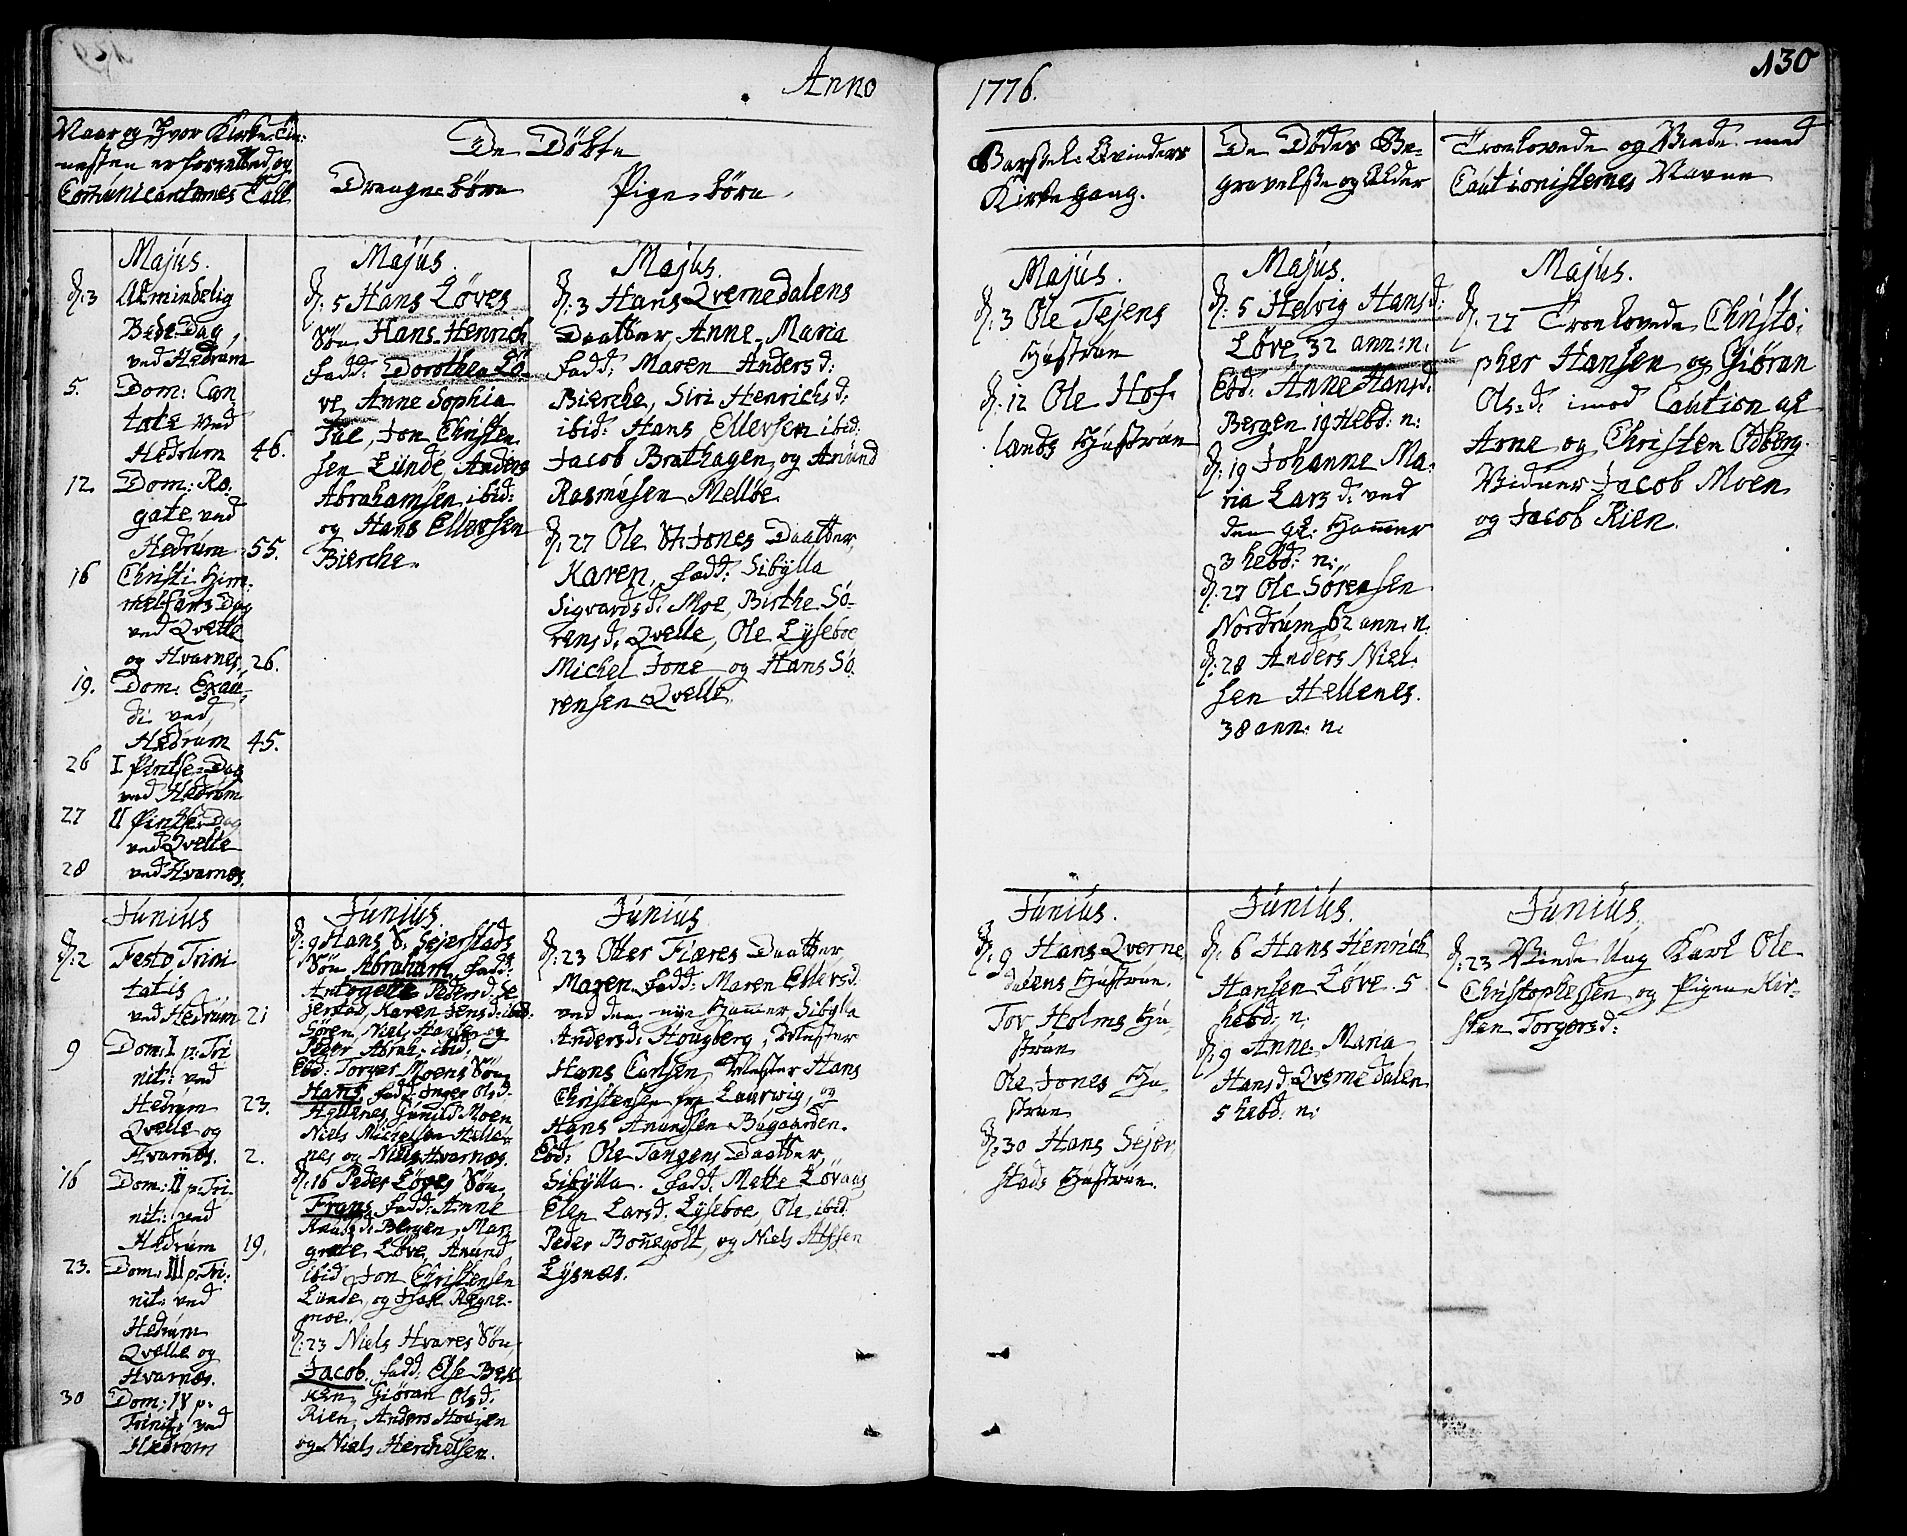 Anno
1776.
130
Naar og Hvor Kirke-Tie-
nesten er forretted og
Comunicanternes Tall
De Döbte
Drenge-børn
Pige-børn
Barsel-Qvinders
Kirkegang.
De Dödes Be-
gravelse og Alder
Troelovede og Viede med
Cautionisternes Navne
Majus.
d: 3 Almindelig
Bede Dag
ved Hedrum
5. Dom: Can
tate ved
Hedrum 46.
12. Dom: Ro
gate ved
Hedrum 55.
16 Christi Him-
melfarts Dag
ved Qvelle
og Hvarnes. 26.
19. Dom: Exau-
di ved
Hedrum 45.
26 I Pintse-Dag
ved Hedrum
27 II Pintse-Dag
ved Qvelle
28 ved Hvarnes.
Majus.
d: 5 Hans Löves
Sön Hans Henrich
fadd: Dorothea Lö-
ve, Anne Sophia
Jon Christen
sen Lunde, Anders
Abrahamsen ibid:
og Hans Ellevsen
Bierche.
Majus.
d: 3 Hans Qvernedalens
Daatter, Anne Maria
fadd: Maren Anders d:
Bierche, Siri Henrichs d:
ibid: Hans Ellevsen ibid:
Jacob Brathagen, og Anund
Rasmusen Melløe
d: 27 Ole St: Jones Daatter,
Karen, fadd: Sibylla
Sigvards d: Moe, Birthe Sö-
rens d: Qvelle, Ole Lyseboe
Michel Jone og Hans Sö
rensen Qvelle.
Majus.
d: 3 Ole Tejens
Hustrue
d: 12 Ole Hof-
lands Hustrue
Majus.
d: 5 Helvig Hans d:
Löve 32 ann: n:
Eod: Anne Hans d:
Bergen 19 Hebd: n:
d: 19 Johanne Ma-
ria Lars d: ved
den gl: Hammer
3 hebd: n:
d: 27 Ole Sörensen
Nordrum 62 ann: n:
d: 28 Anders Niel-
sen Hellenes.
38 ann: n:
Majus.
d: 27 Troelovede Christo-
pher Hansen og Giöran
Ols-d: imod Caution af
Arne og Christen Odberg.
Vidner Jacob Moen
og Jacob Rien.
Junius
d: 2 Festo Trini
tatis
ved Hedrum 21
9 Dom: I p: Tri
nit: ved
Hedrum 23.
Qvelle og
Hvarnes. 2.
16 Dom: II p: Tri
nit: ved
Hedrum 19.
23. Dom: III p: Tri:
nit: ved
Hedrum
Qvelle og
Hvarnes.
30 Dom: IV p:
Trinit: ved
Hedrum
Junius
d: 9 Hans S: Sejerstads
Sön Abraham, fadd:
Antogelle Peders d: Se
jerstad, Karen Jens d: ibid:
Sören, Niel Hansen og
Peder Abrah: ibid:
Eod: Torger Moens Sön
Hans, fadd: Inger Ols d:
Hellenes, Gunild Moen
Niels Michelsen Helle-
nes og Niels Hvarnes.
d: 16 Peder Löves Sön
Frans, fadd: Anne
Bergen, Mar
grete Löve, Anund
ibid: Jon Christensen
Lunde, og Regne-
moe.
d: 23 Niels Hvares Sön
Jacob, fadd: Else Bek
ken, Giöran Ols d:
Rien, Anders
og Niels Herchelsen.
Junius.
d: 23 Otter Fiæres Daatter,
Maren, fadd: Maren Ellevs d:
ved den nye Hammer, Sibylla
Anders d: Hougberg, Mester
Hans Carlsen, Mester Hans
Christensen fra Laurwig, og
Hans Anundsen Bugaarden.
Eod: Ole Tangens Daatter,
Sibylla. fadd: Mette Lövaas
Elen Lars d: Lyseboe, Ole ibid:
Peder Bonnegolt, og Niels Alfsen
Lysnæs.
Junius.
d: 9 Hans Qverne
dalens Hustrue.
Tov Holms Hu-
strue
Ole Jones Hu-
strue
d: 30 Hans Sejer
stads Hustrue.
Junius.
d: 6 Hans Henrich
Hansen Löve. 5
hebd: n.
d: 9 Anne Maria
Hans d: Qvernedalen
5 hebd: n:
Junius
d: 23 Viede Ung Karl Ole
Christophersen og Pigen Kir-
sten Torgers d: